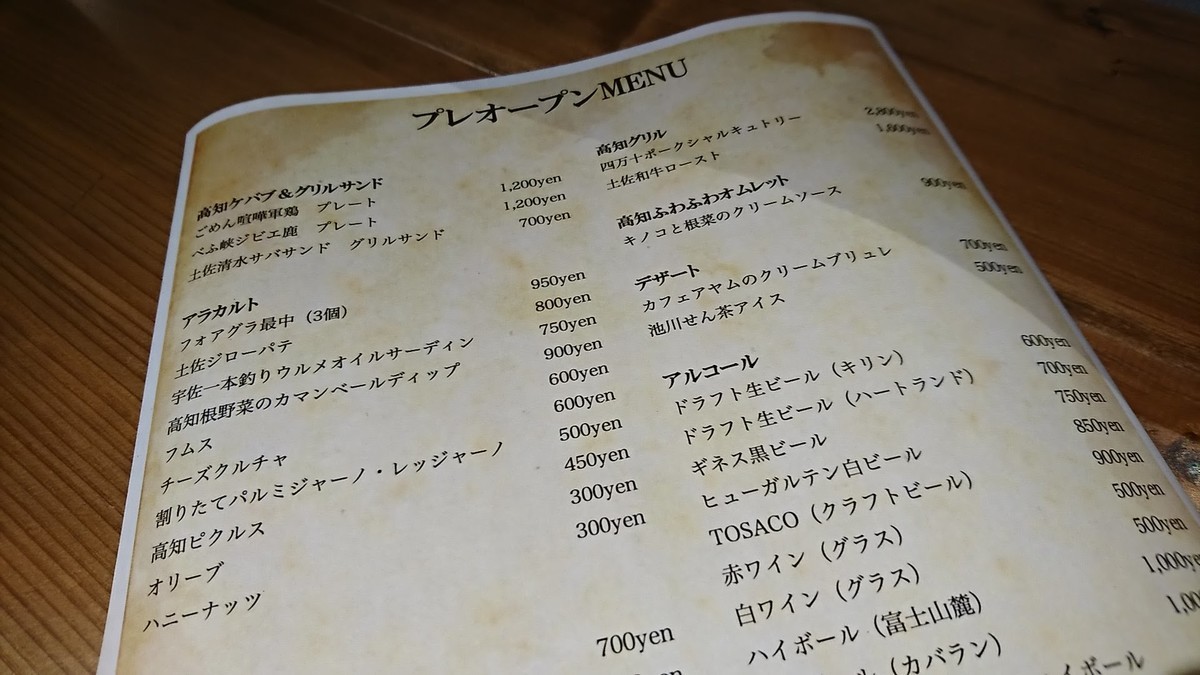 プレオープンMENU
高知ケバブ&グリルサンド
ごめん喧嘩軍鶏 プレート 1,200yen
べふ峡ジビエ鹿 プレート 1,200yen
土佐清水サバサンド グリルサンド 700yen
アラカルト
フォアグラ最中（3個） 950yen
土佐ジローパテ 800yen
宇佐一本釣りウルメオイルサーディン 750yen
高知根野菜のカマンベールディップ 900yen
フムス 600yen
チーズクルチャ 600yen
割りたてパルミジャーノ・レッジャーノ 500yen
高知ピクルス 450yen
オリーブ 300yen
ハニーナッツ 300yen
700yen
高知グリル
四万十ポークシャルキュトリー 2,800yen
土佐和牛ロースト
高知ふわふわオムレット
キノコと根菜のクリームソース 900yen
デザート
カフェアヤムのクリームブリュレ 700yen
池川せん茶アイス 500yen
アルコール
ドラフト生ビール（キリン） 600yen
ドラフト生ビール（ハートランド） 700yen
ギネス黒ビール 750yen
ヒューガルテン白ビール 850yen
TOSACO（クラフトビール） 900yen
赤ワイン（グラス） 500yen
白ワイン（グラス） 500yen
ハイボール（富士山麓） 1,000ye
（カバラン）
イボール